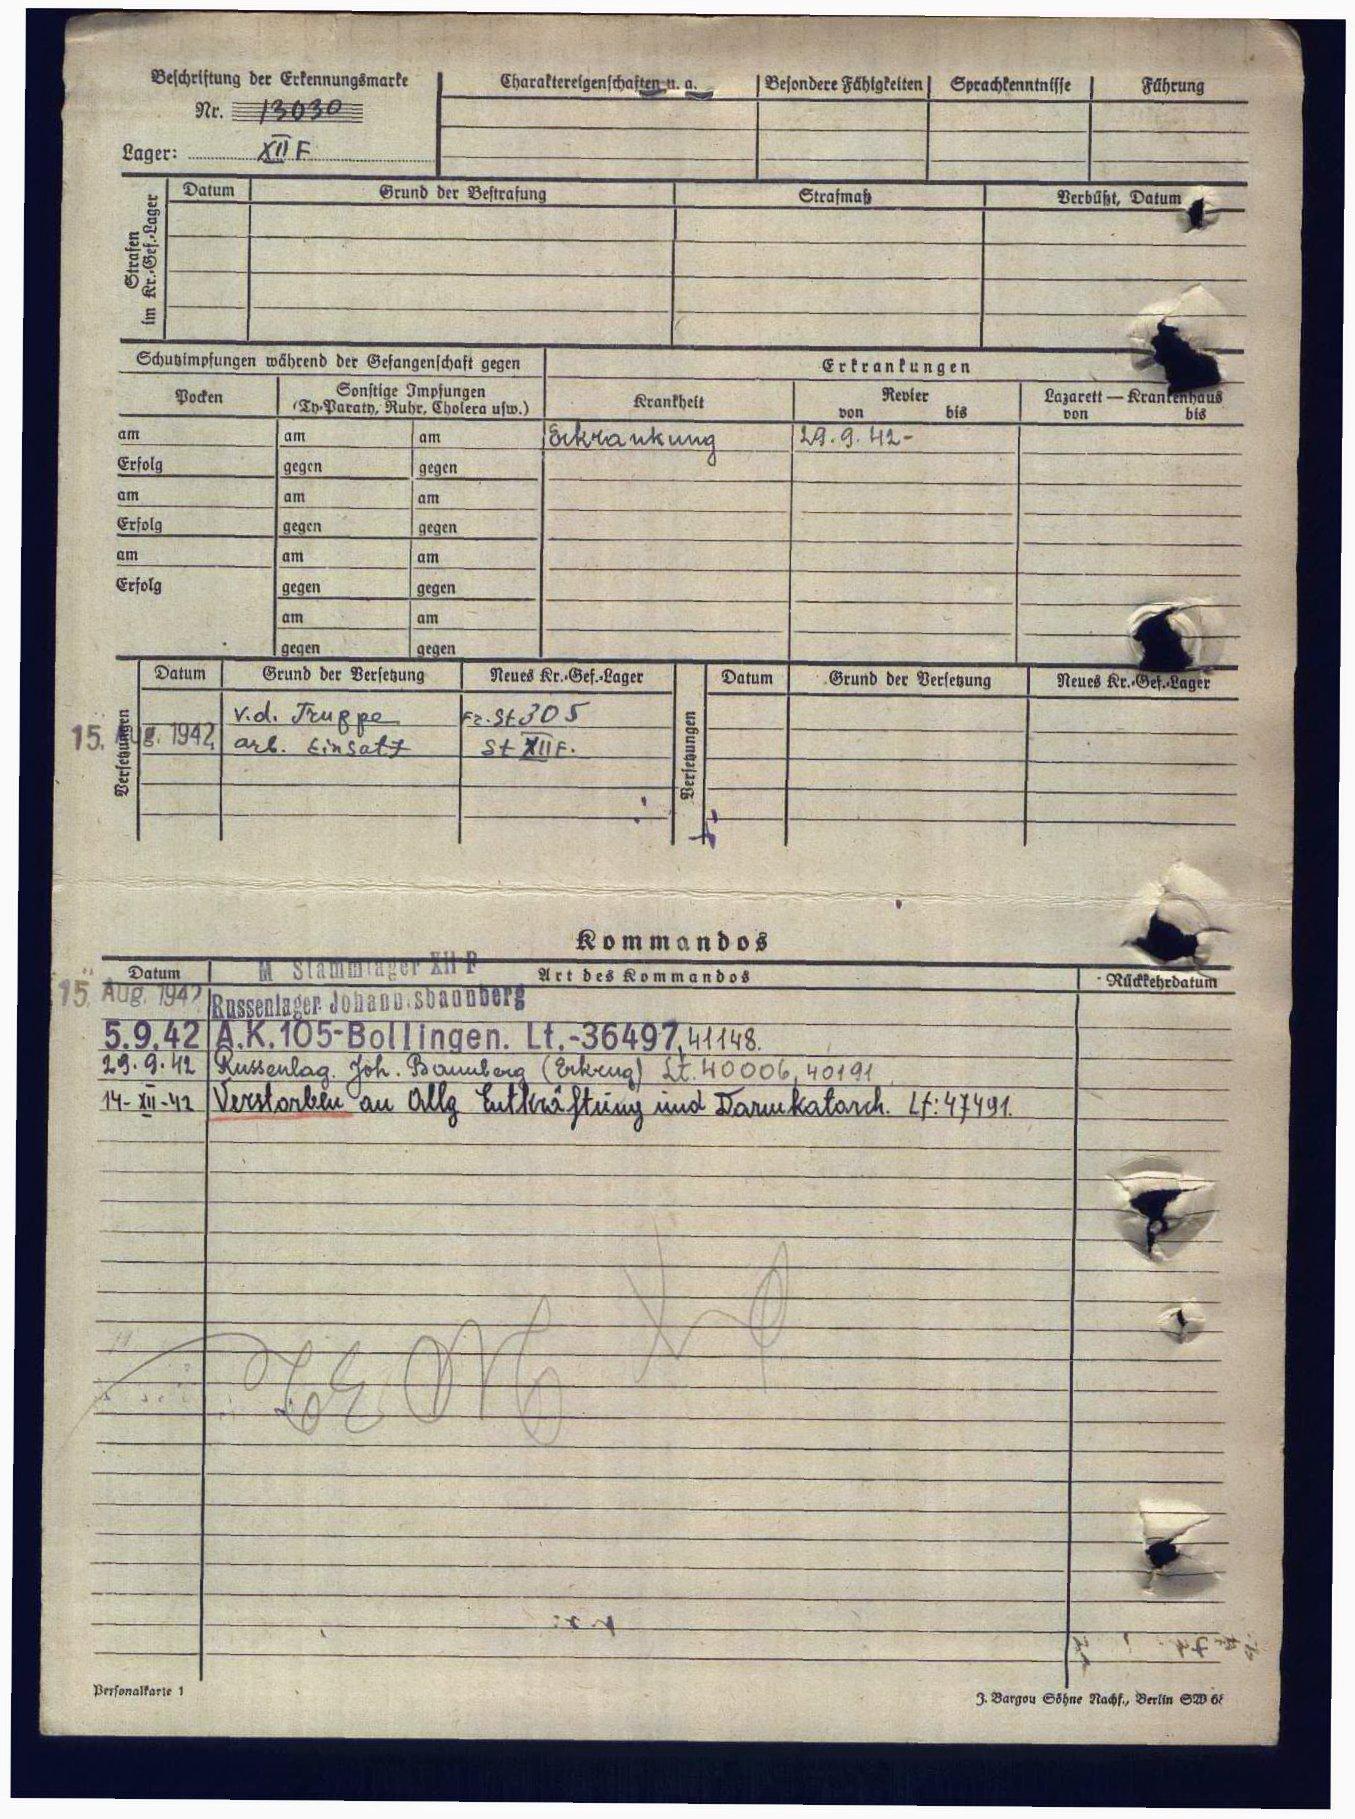 Beschriftung der Erkennungsmarke
Nr. 13030
Lager: XII F
Charaktereigenschaften u. a. Besondere Fähigkeiten Sprachkenntnisse Führung
Strafen im Kr.-Gef.-Lager
Datum Grund der Bestrafung Strafmaß Verbüßt, Datum
Schutzimpfungen während der Gefangenschaft gegen Erkrankungen
Pocken Sonstige Impfungen Krankheit Revier Lazarett — Krankenhaus
(Ty-Paraty, Ruhr, Cholera usw.) von bis von bis
am am am Erkrankung 29.9.42-
Erfolg gegen gegen
am am am
Erfolg gegen gegen
am am am
Erfolg gegen gegen
am am
gegen gegen
Versetzungen Datum Grund der Versetzung Neues Kr.-Gef.-Lager Versetzungen Datum Grund der Versetzung Neues Kr.-Gef.-Lager
v.d. Truppe Fr. St 305
15. Aug. 1942 arb. Einsatz St XII F.
Kommandos
M Stammlager XII F
Datum Art des Kommandos Rückkehrdatum
15. Aug. 1942 Russenlager Johannisbannberg
5.9.42 A.K.105-Bollingen. Lt.-36497, 41148.
29.9.42 Russenlag. Joh. Bannberg (Erkrng) Lt. 40006, 40191
14-XII-42 Verstorben an Allg Entkräftung und Darmkatarrh. Lt: 47491.
Personalkarte 1
J. Bargou Söhne Nachf., Berlin SW 68